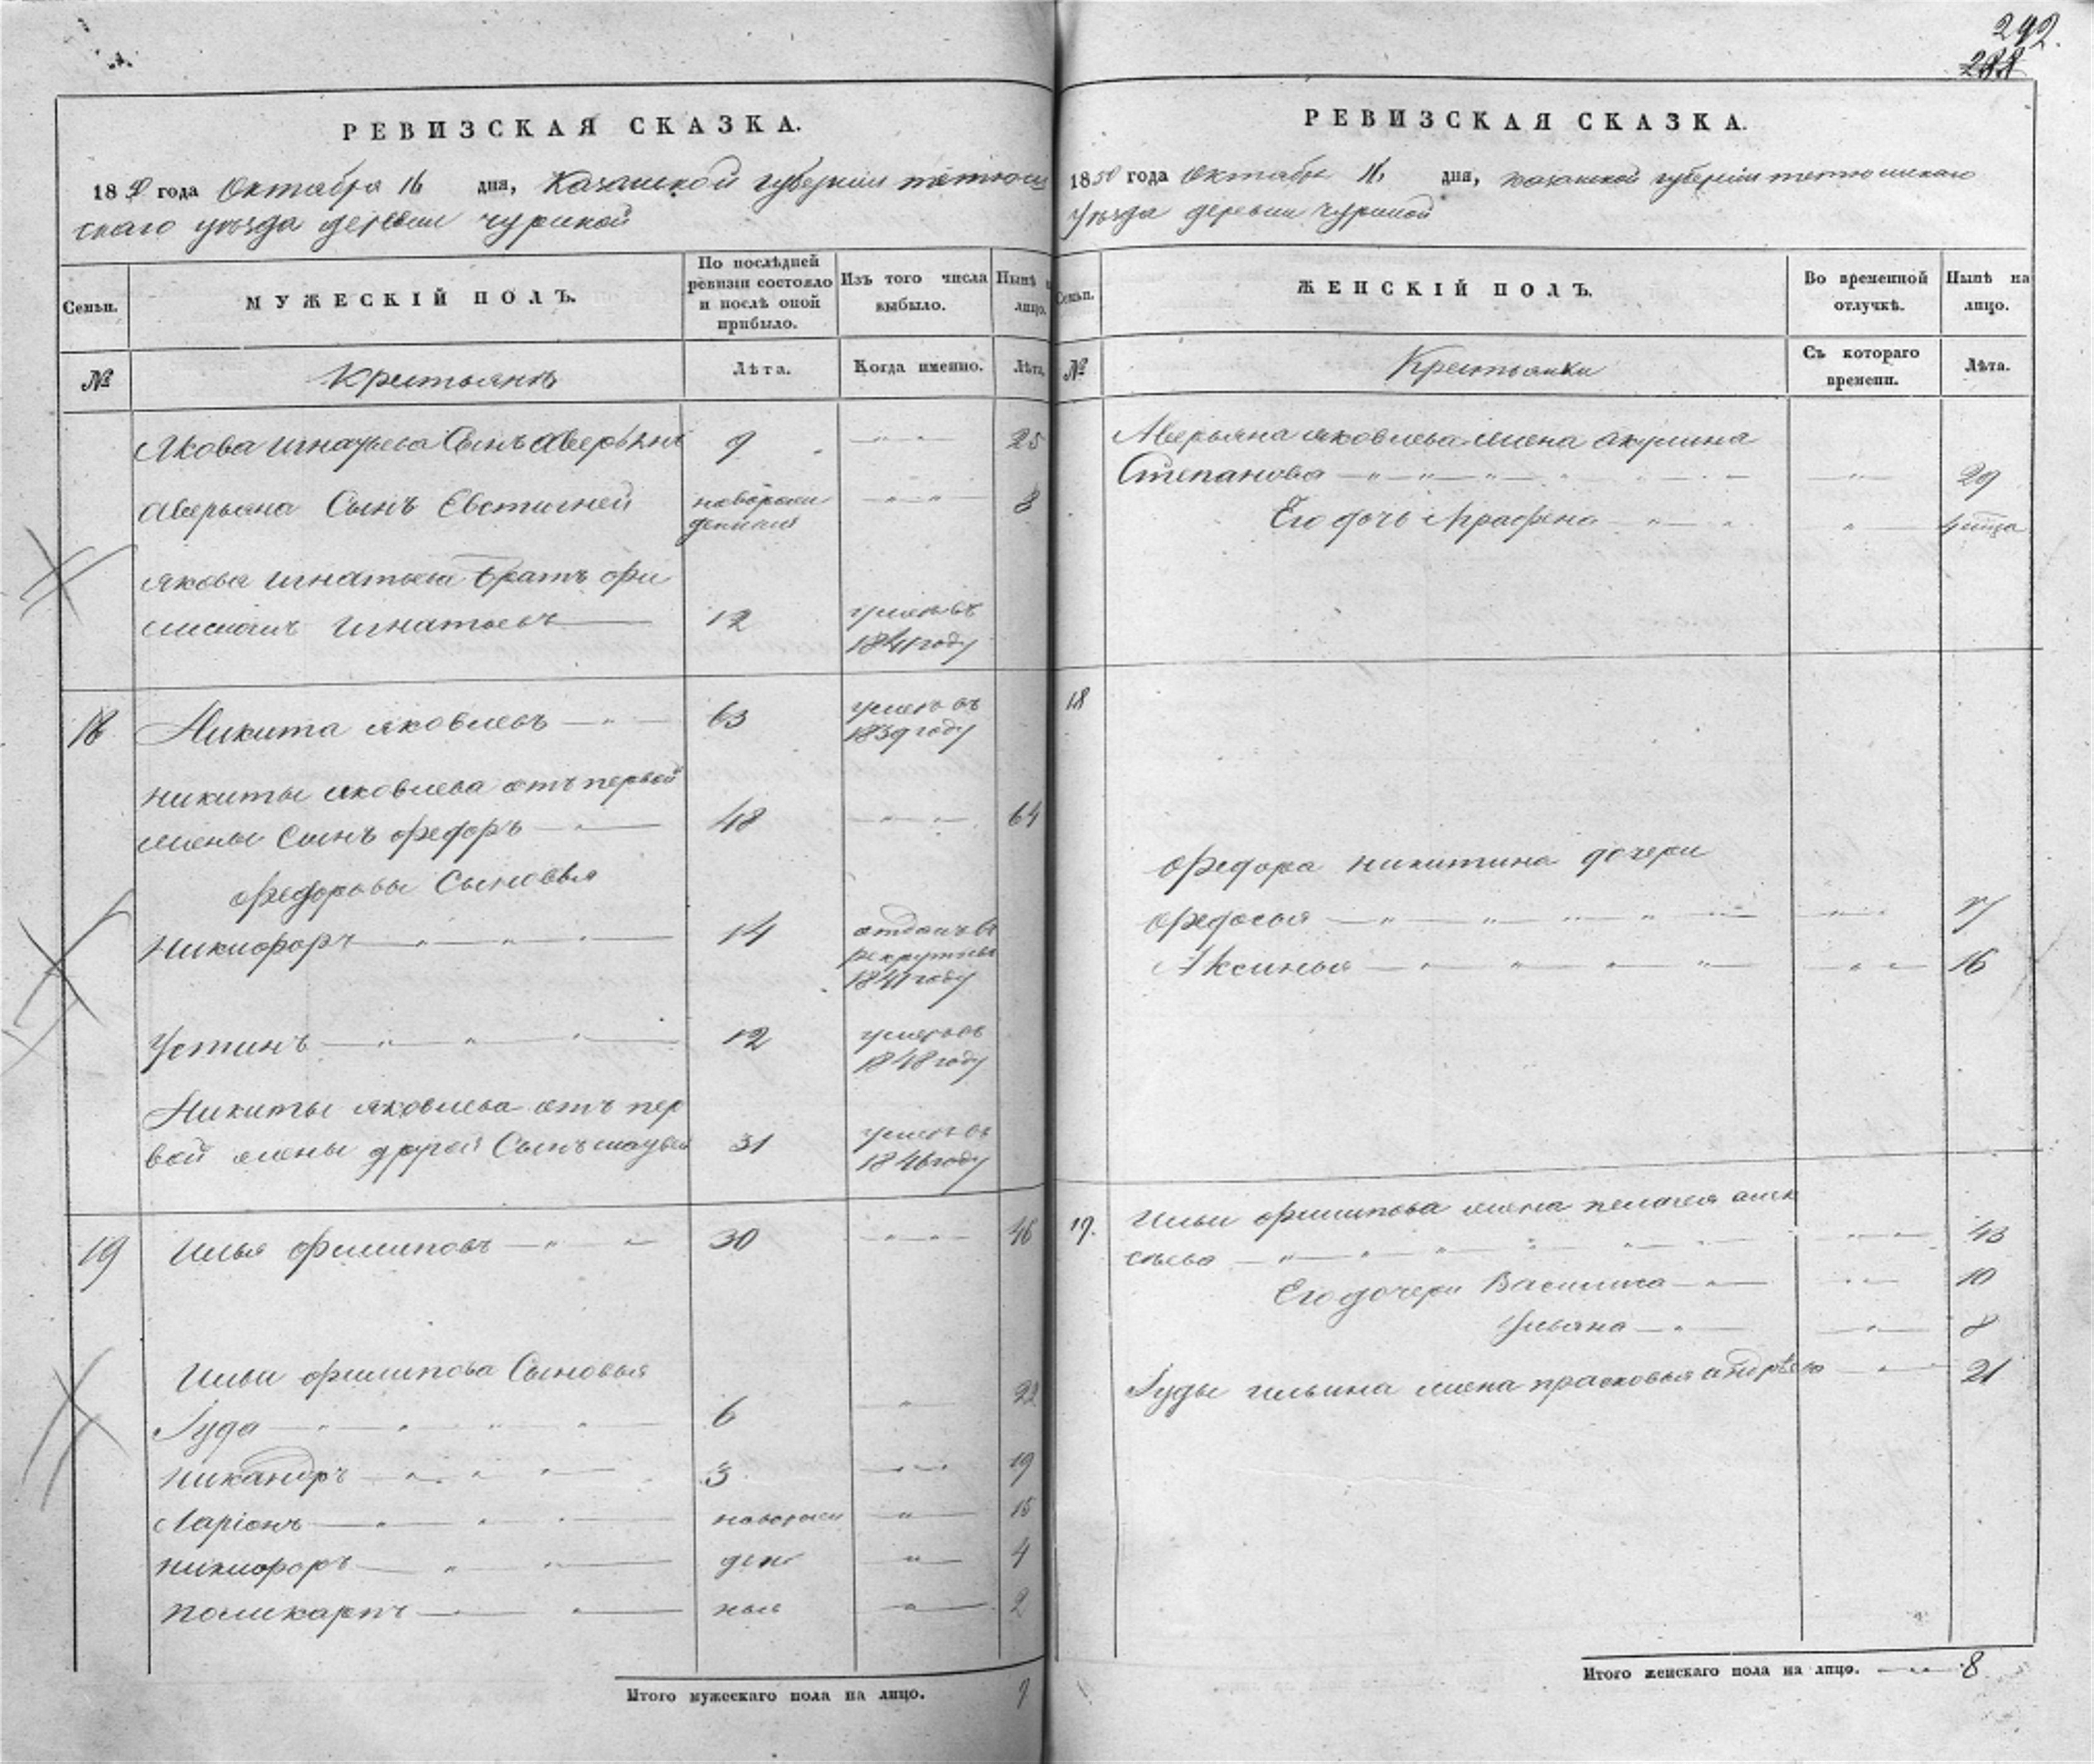 292.
288
РЕВИЗСКАЯ СКАЗКА.
1850 года Октября 16 дня, Казанской губернии тетюш
скаго уезда деревни чуриной
Семьи.
МУЖЕСКІЙ ПОЛЪ.
По послѣдней ревизіи состояло и послѣ оной прибыло.
Изъ того числа выбыло.
Нынѣ на лицо.
№
Крестьянѣ
Лѣта.
Когда именно.
Лѣта.
Якова игнатьева Сынъ аверьянъ 9 25
аверьяна Сынъ Евстигней новорож 8
денный
якова игнатьева братъ
игнатьевъ 12 умеръ въ
1841 году
18 Никита яковлевъ 63 умеръ въ
1839 году
никиты яковлева отъ первой
жены Сынъ федоръ 48 64
федоровы Сыновья
никифоръ 14 отданъ въ
рекруты въ
1841 году
Устинъ 12 умеръ въ
1848 году
Никиты яковлева отъ пер
вой жены другой Сынъ 31 умеръ въ
1846 году
19 илья филиповъ 30 46
ильи филипова Сыновья
Іуда 6 22
никандръ 3 19
Ларіонъ новорож 15
никифоръ ден 4
поликарпъ ныя 2
Итого мужескаго пола на лицо. 7
РЕВИЗСКАЯ СКАЗКА.
1850 года Октября 16 дня, казанской губерніи тетюшскаго
уезда деревни чуриной
Семьи.
ЖЕНСКІЙ ПОЛЪ.
Во временной отлучкѣ.
Нынѣ на лицо.
№
Крестьянки
Съ котораго времени.
Лѣта.
Аверьяна яковлева жена акулина
Степанова 29
Его дочь Аграфена
18
федора никитина дочери
федосья
Аксинья 16
19. ильи филипова жена пелагея алек
сеева 43
Его дочери Василиса 10
Ульяна 8
Іуды ильина жена прасковья андрѣева 21
Итого женскаго пола на лицо. 8